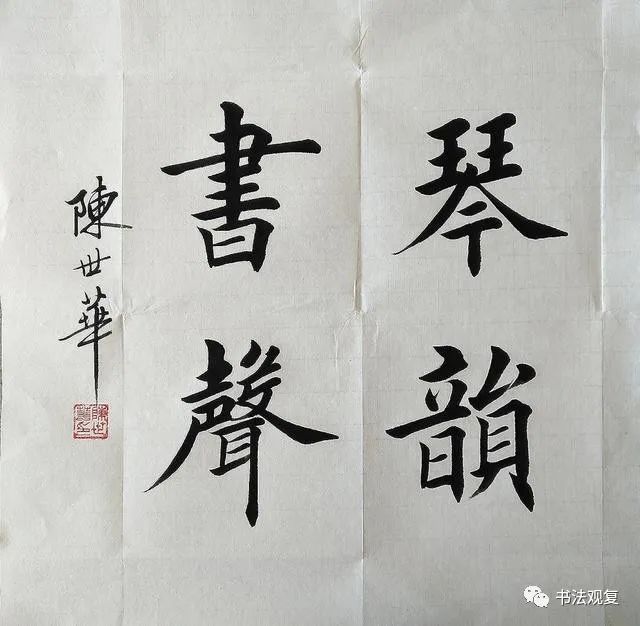 琴韻
書聲
陳世華
书法观复